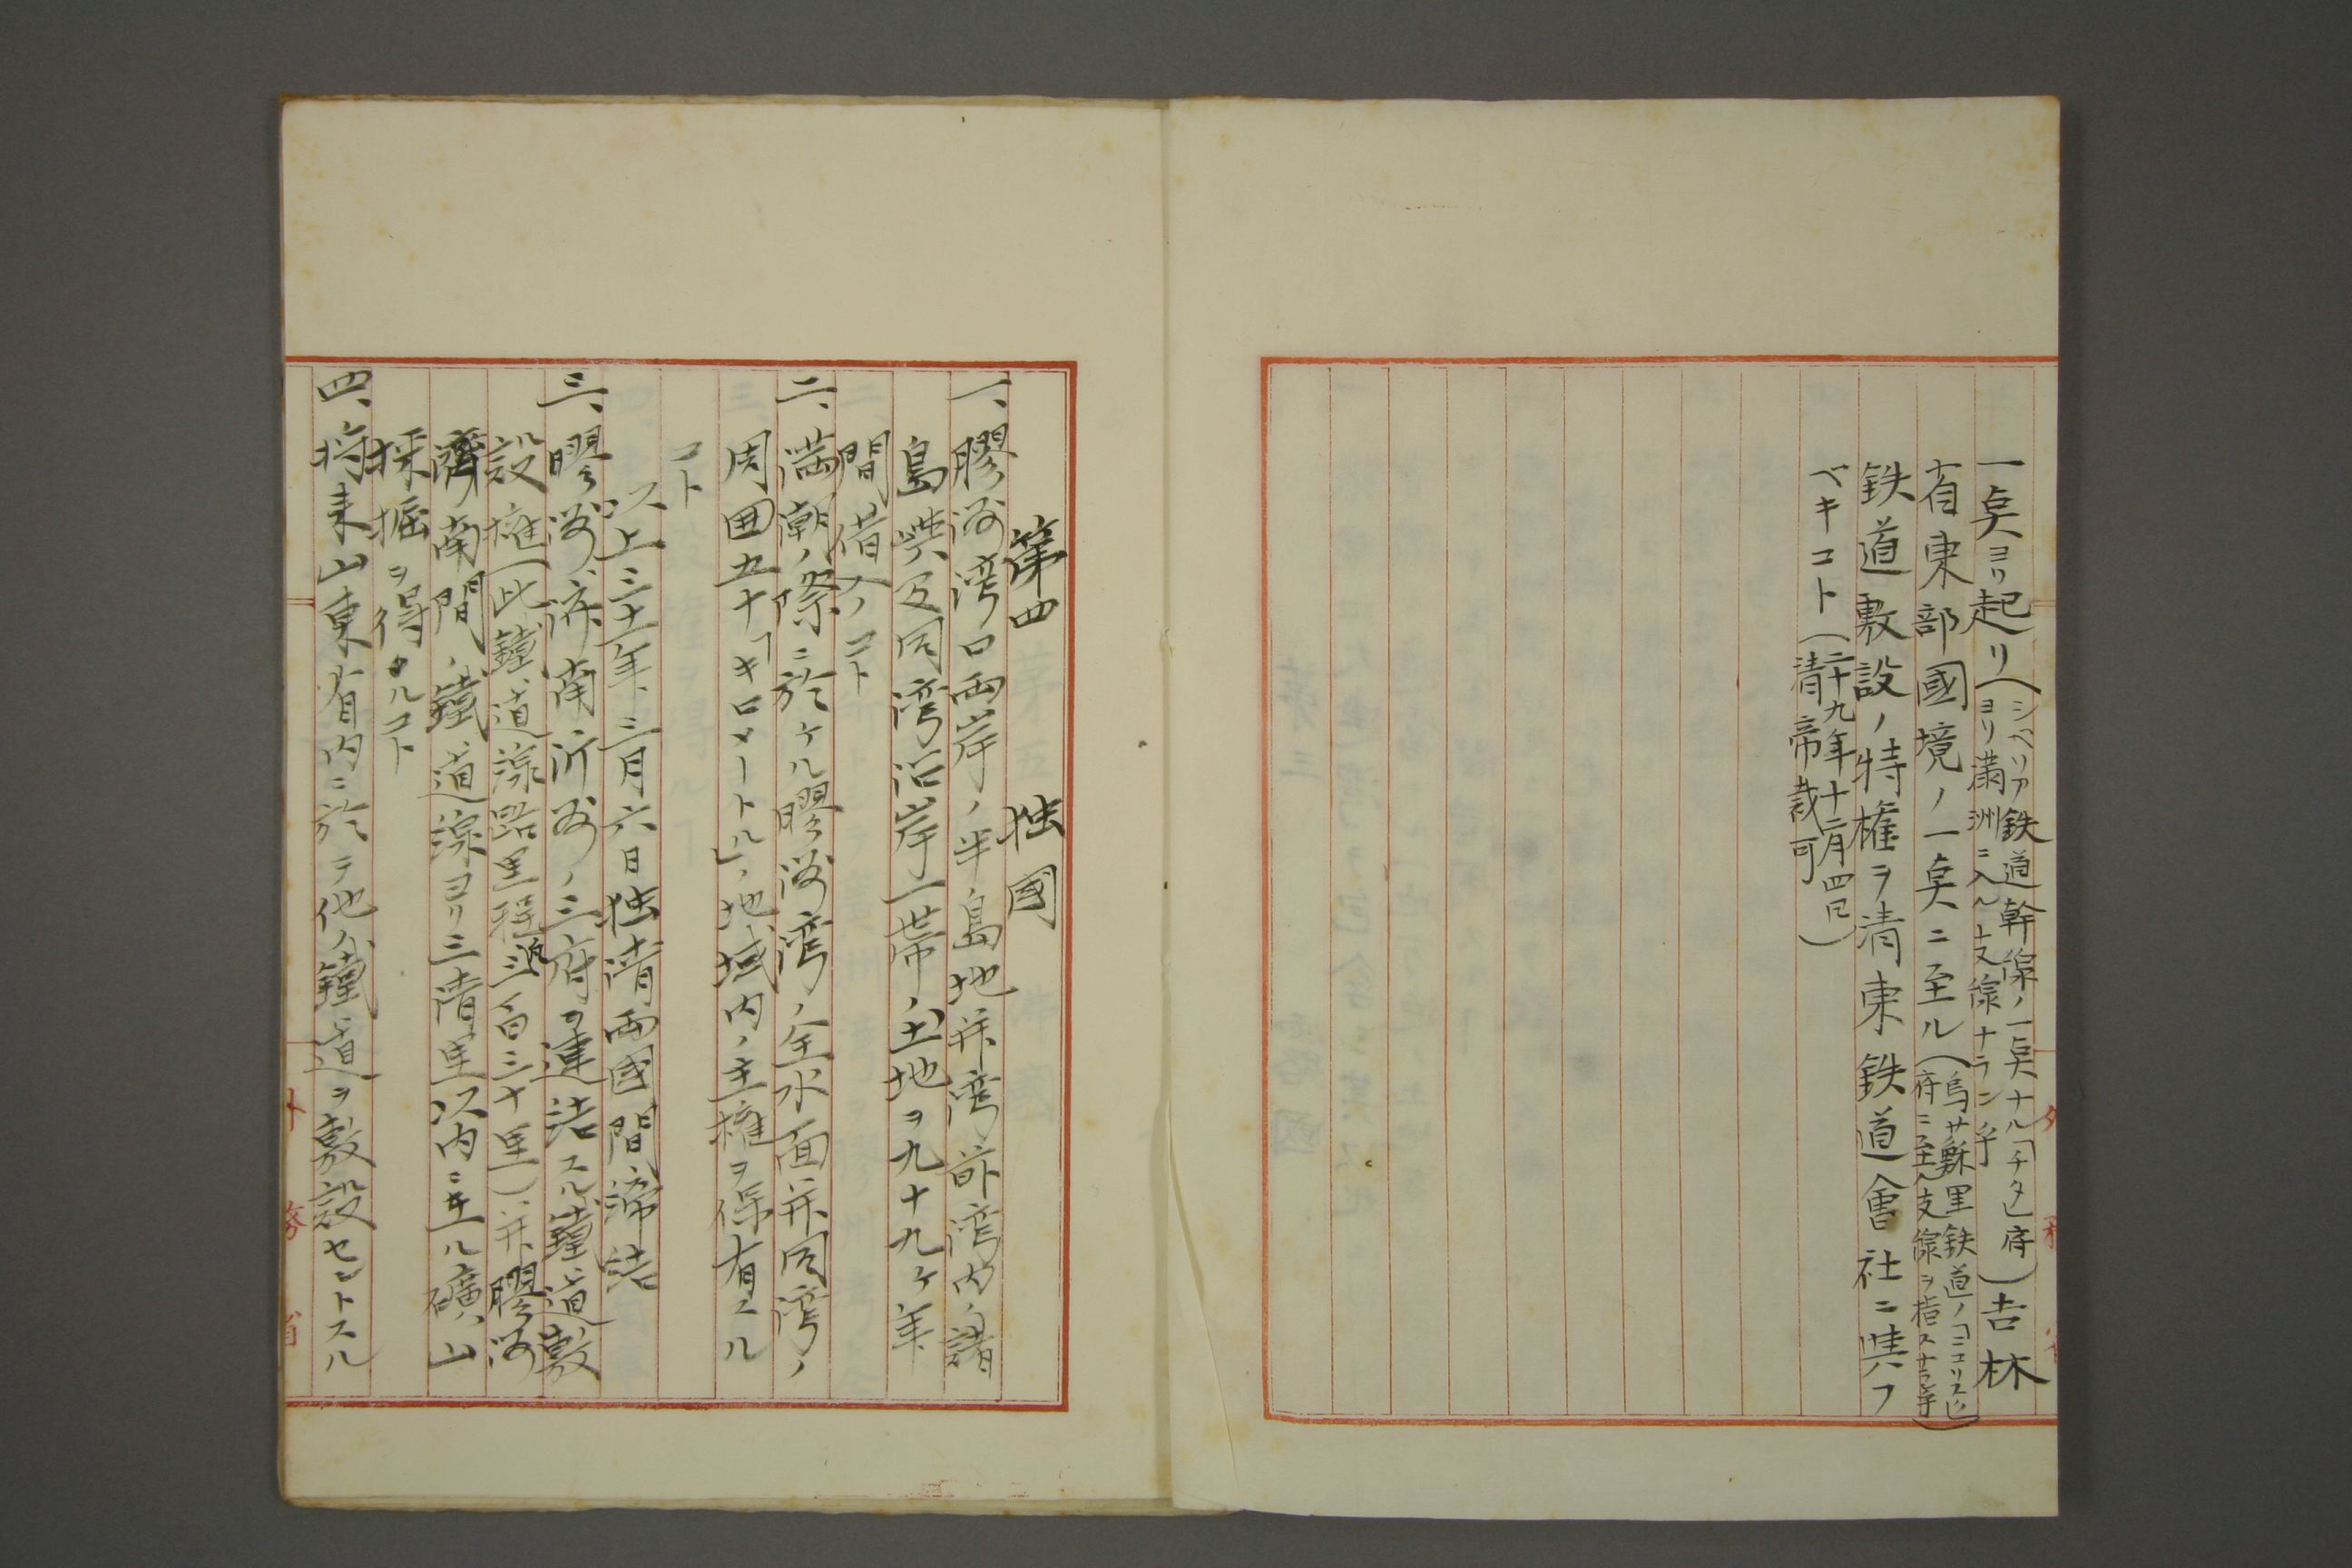 一㚑ヨリ起リ(シベリア鉄道幹線ノ一㚑ナル「チタ」府
ヨリ満洲ニ入ル支線ナラン乎)吉林
省東部國境ノ一㚑ニ至ル(烏蘇里鉄道ノ「ニコリスク」
府ニ至ル支線ヲ指スナラン乎)
鉄道敷設ノ特権ヲ清東鉄道會社ニ與フ
ベキコト(二十九年十二月四日
清帝裁可)
第四 独國
一、膠洲湾口両岸ノ半島地并湾前湾内ノ諸
島嶼及同湾沿岸一帯ノ土地ヲ九十九ケ年
間借入ノコト
二、満潮ノ際ニ於ケル膠洲湾ノ全水面并同湾ノ
周囲五十「キロメートル」ノ地域内ノ主権ヲ保有スル
コト
以上三十一年三月六日独清両國間締結
三、膠洲、済南、沂州ノ三府ヲ連結スル鐵道敷
設権(此鐵道線路里程凡三百三十里)并、膠洲
濟南間ノ鐵道線ヨリ三清里以内ニ在ル礦山
採掘ヲ得タルコト
四、将来山東省内ニ於テ他ノ鐵道ヲ敷設セントスル
外務省